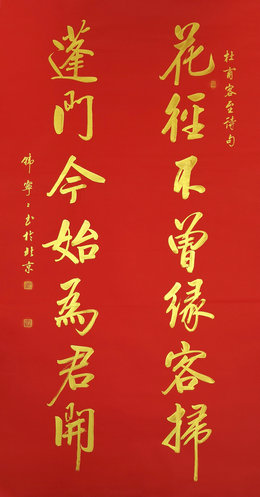 杜甫客至诗句
花径不曾缘客掃
蓬門今始為君開
韩寧寧书於北京